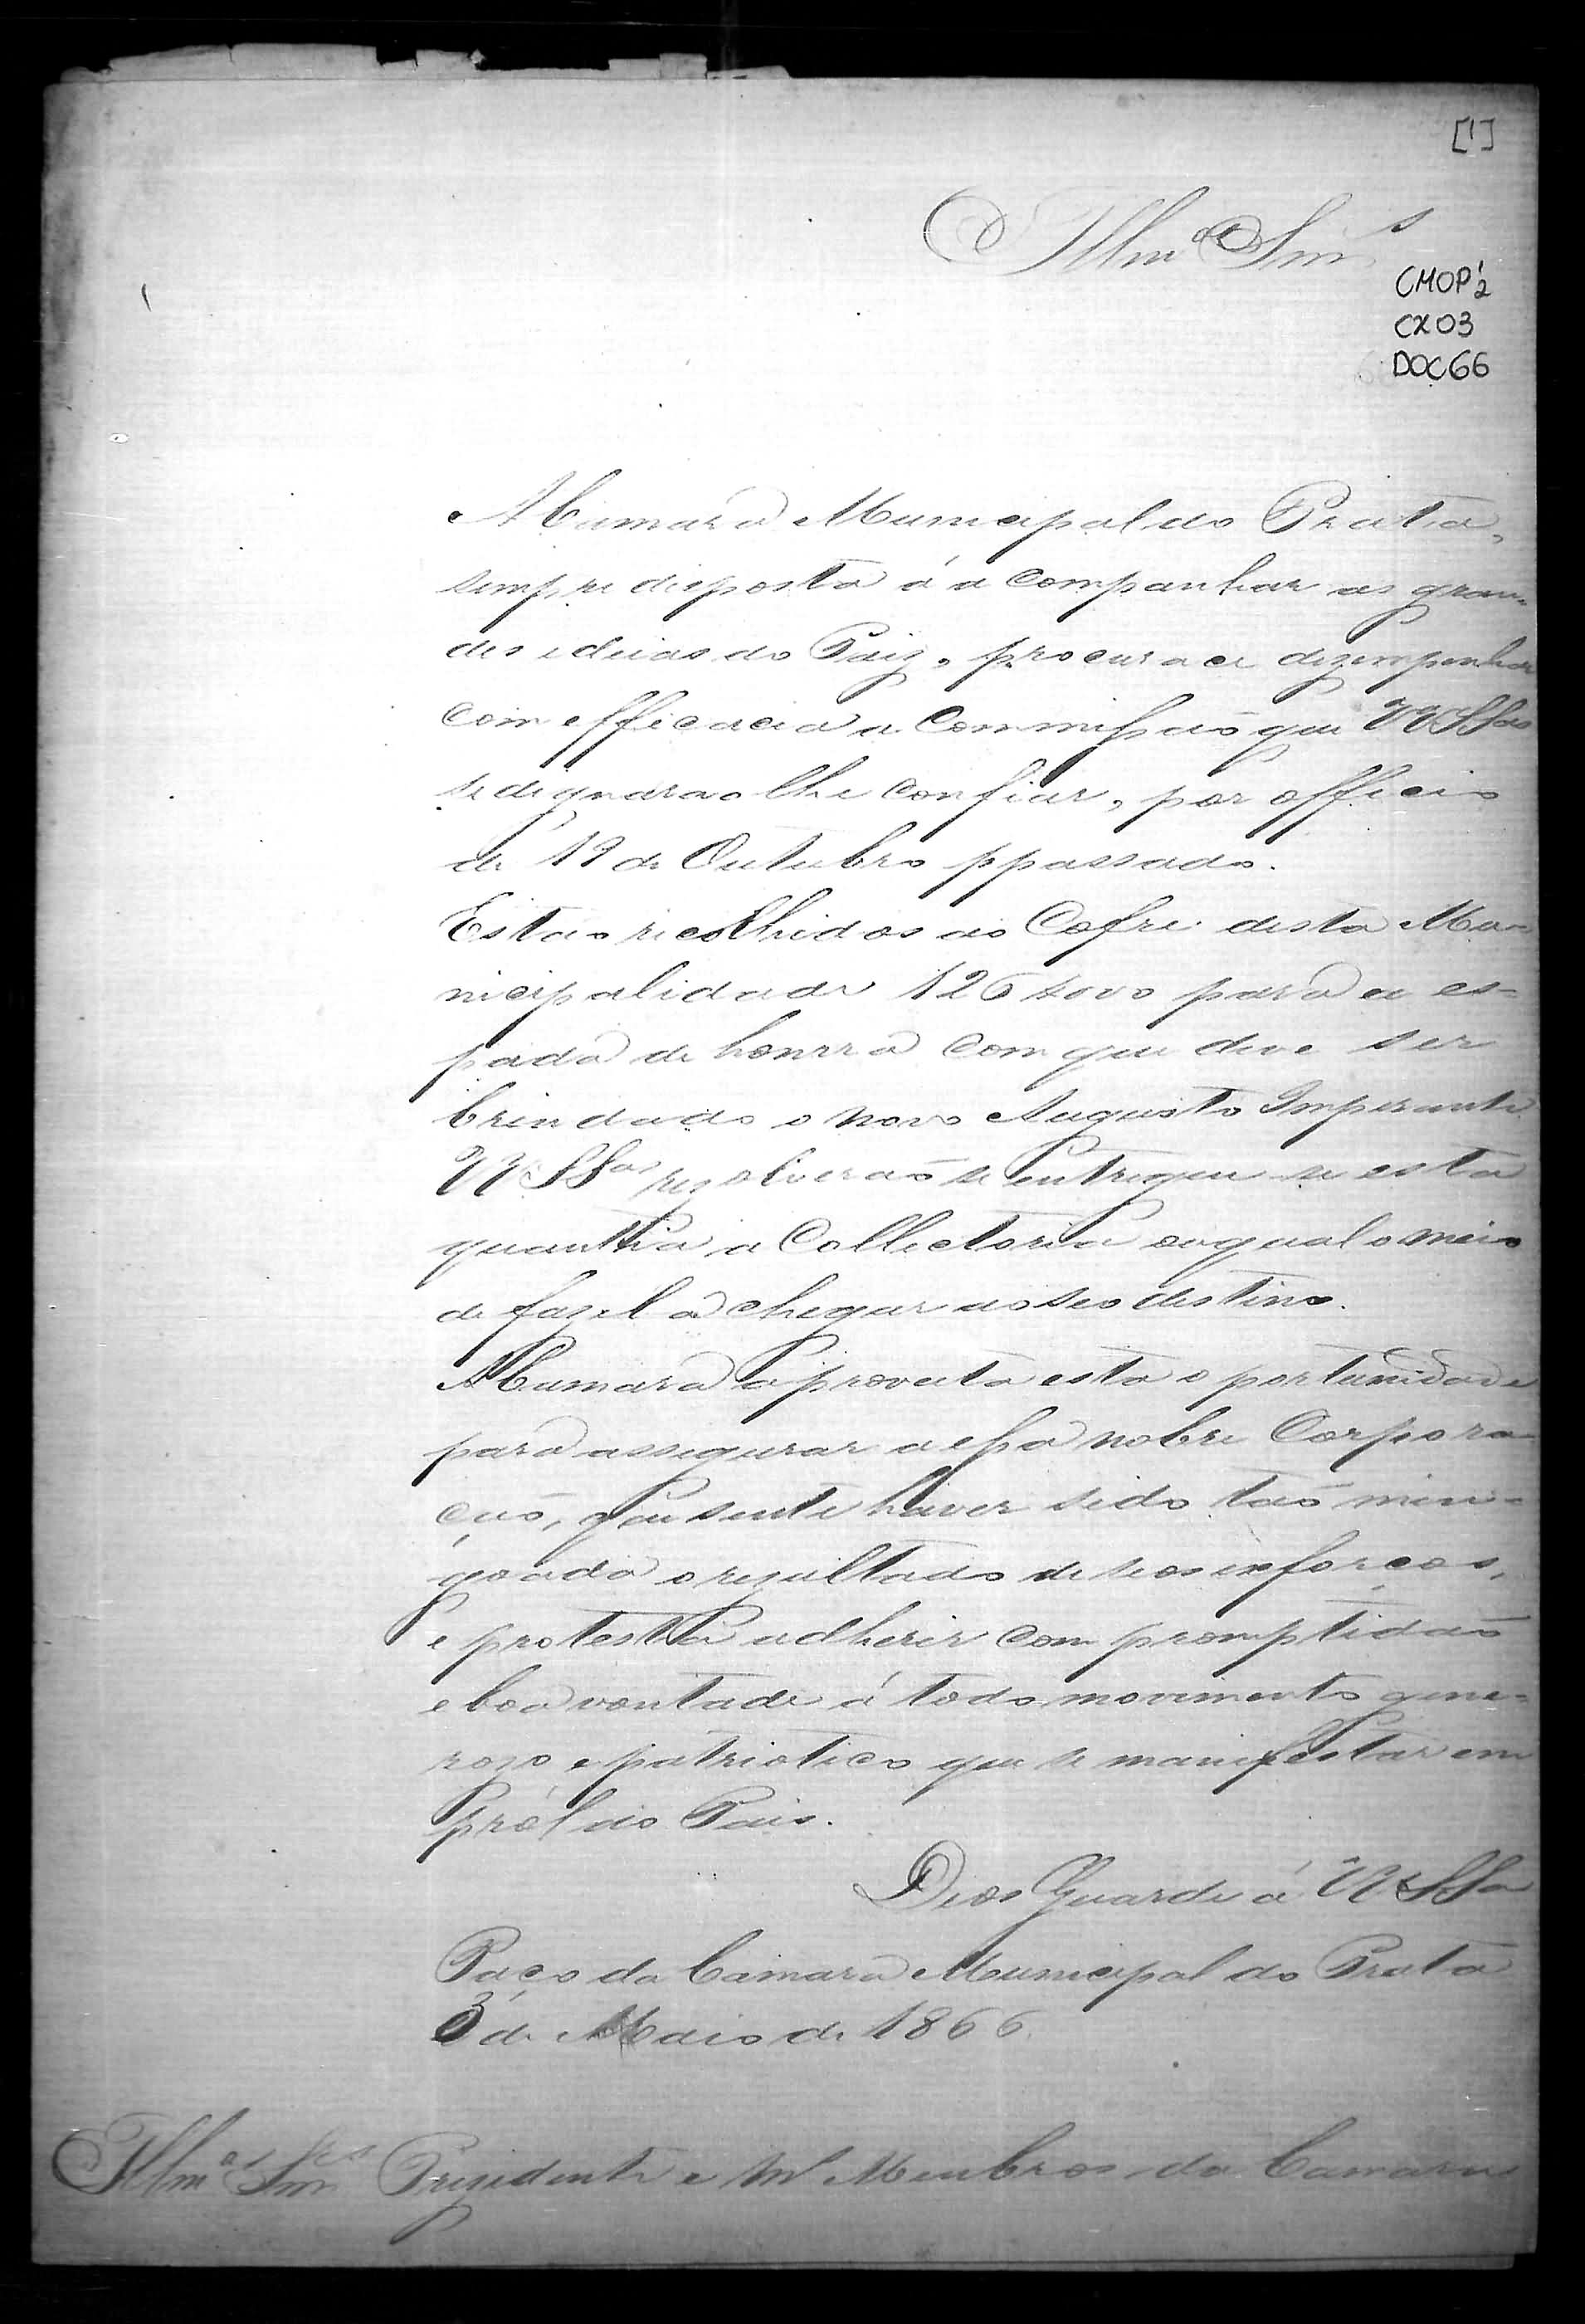 [1]
Illmos Snrs
CMOP¹2
CX03
DOC66
A Camara Municipal do Prata,
sempre disposta á acompanhar as gran-
des ideias do Paiz, procura dezempenhar
com efficacia a Commissaõ que VVSSas
se dignarao lhe confiar, por officio
de 19 de Outubro ppassado.
Estão recolhidos ao Cofre desta Mu-
nicipalidade 126$000 para a es-
pada de honrra com que deve ser
brindado o novo Augusto Imperante
VVSSas rezolveraõ se entregue se esta
quantia a Collectoria ou qual o meio
de fazel a chegar ao seo destino.
A Camara aproveita esta opportunidade
para assegurar a essa nobre Corpora-
çaõ, que sente haver sido taõ min-
goado o rezultado de seos exforços,
e protesta adherir com promptidaõ
e boa vontade á todo movimento gene-
rozo e patriotico que se manifestar em
prol do Pais.
Deos Guarde á VVSSas
Paço da Camara Municipal do Prata
3 de Maio de 1866.
Illmos Snres Prezidente e Membros da Camara